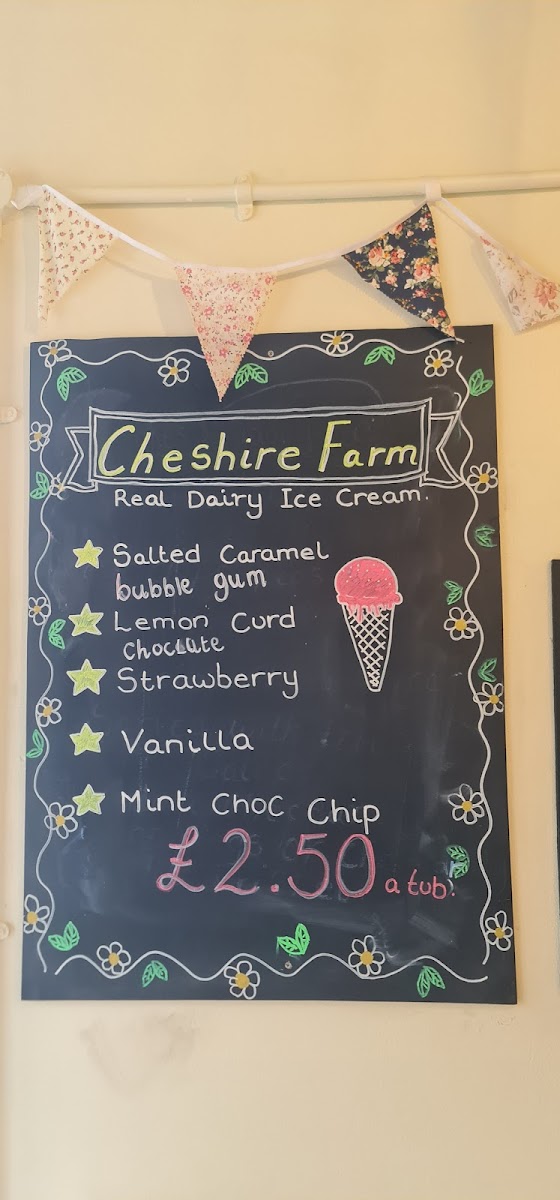 Cheshire Farm
Real Dairy Ice Cream.
Salted Caramel
bubble gum
Lemon Curd
choclate
Strawberry
Vanilla
Mint Choc Chip
£2.50 a tub.